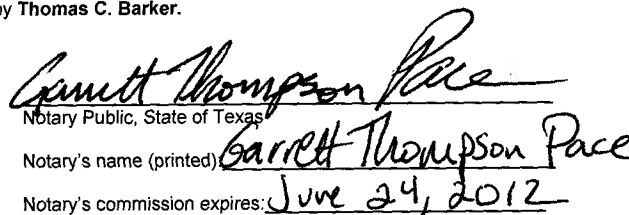 by Thomas C. Barker.
Garrett Thompson Pace
Notary Public, State of Texas
Notary's name (printed): Garrett Thompson Pace
Notary's commission expires: June 24, 2012